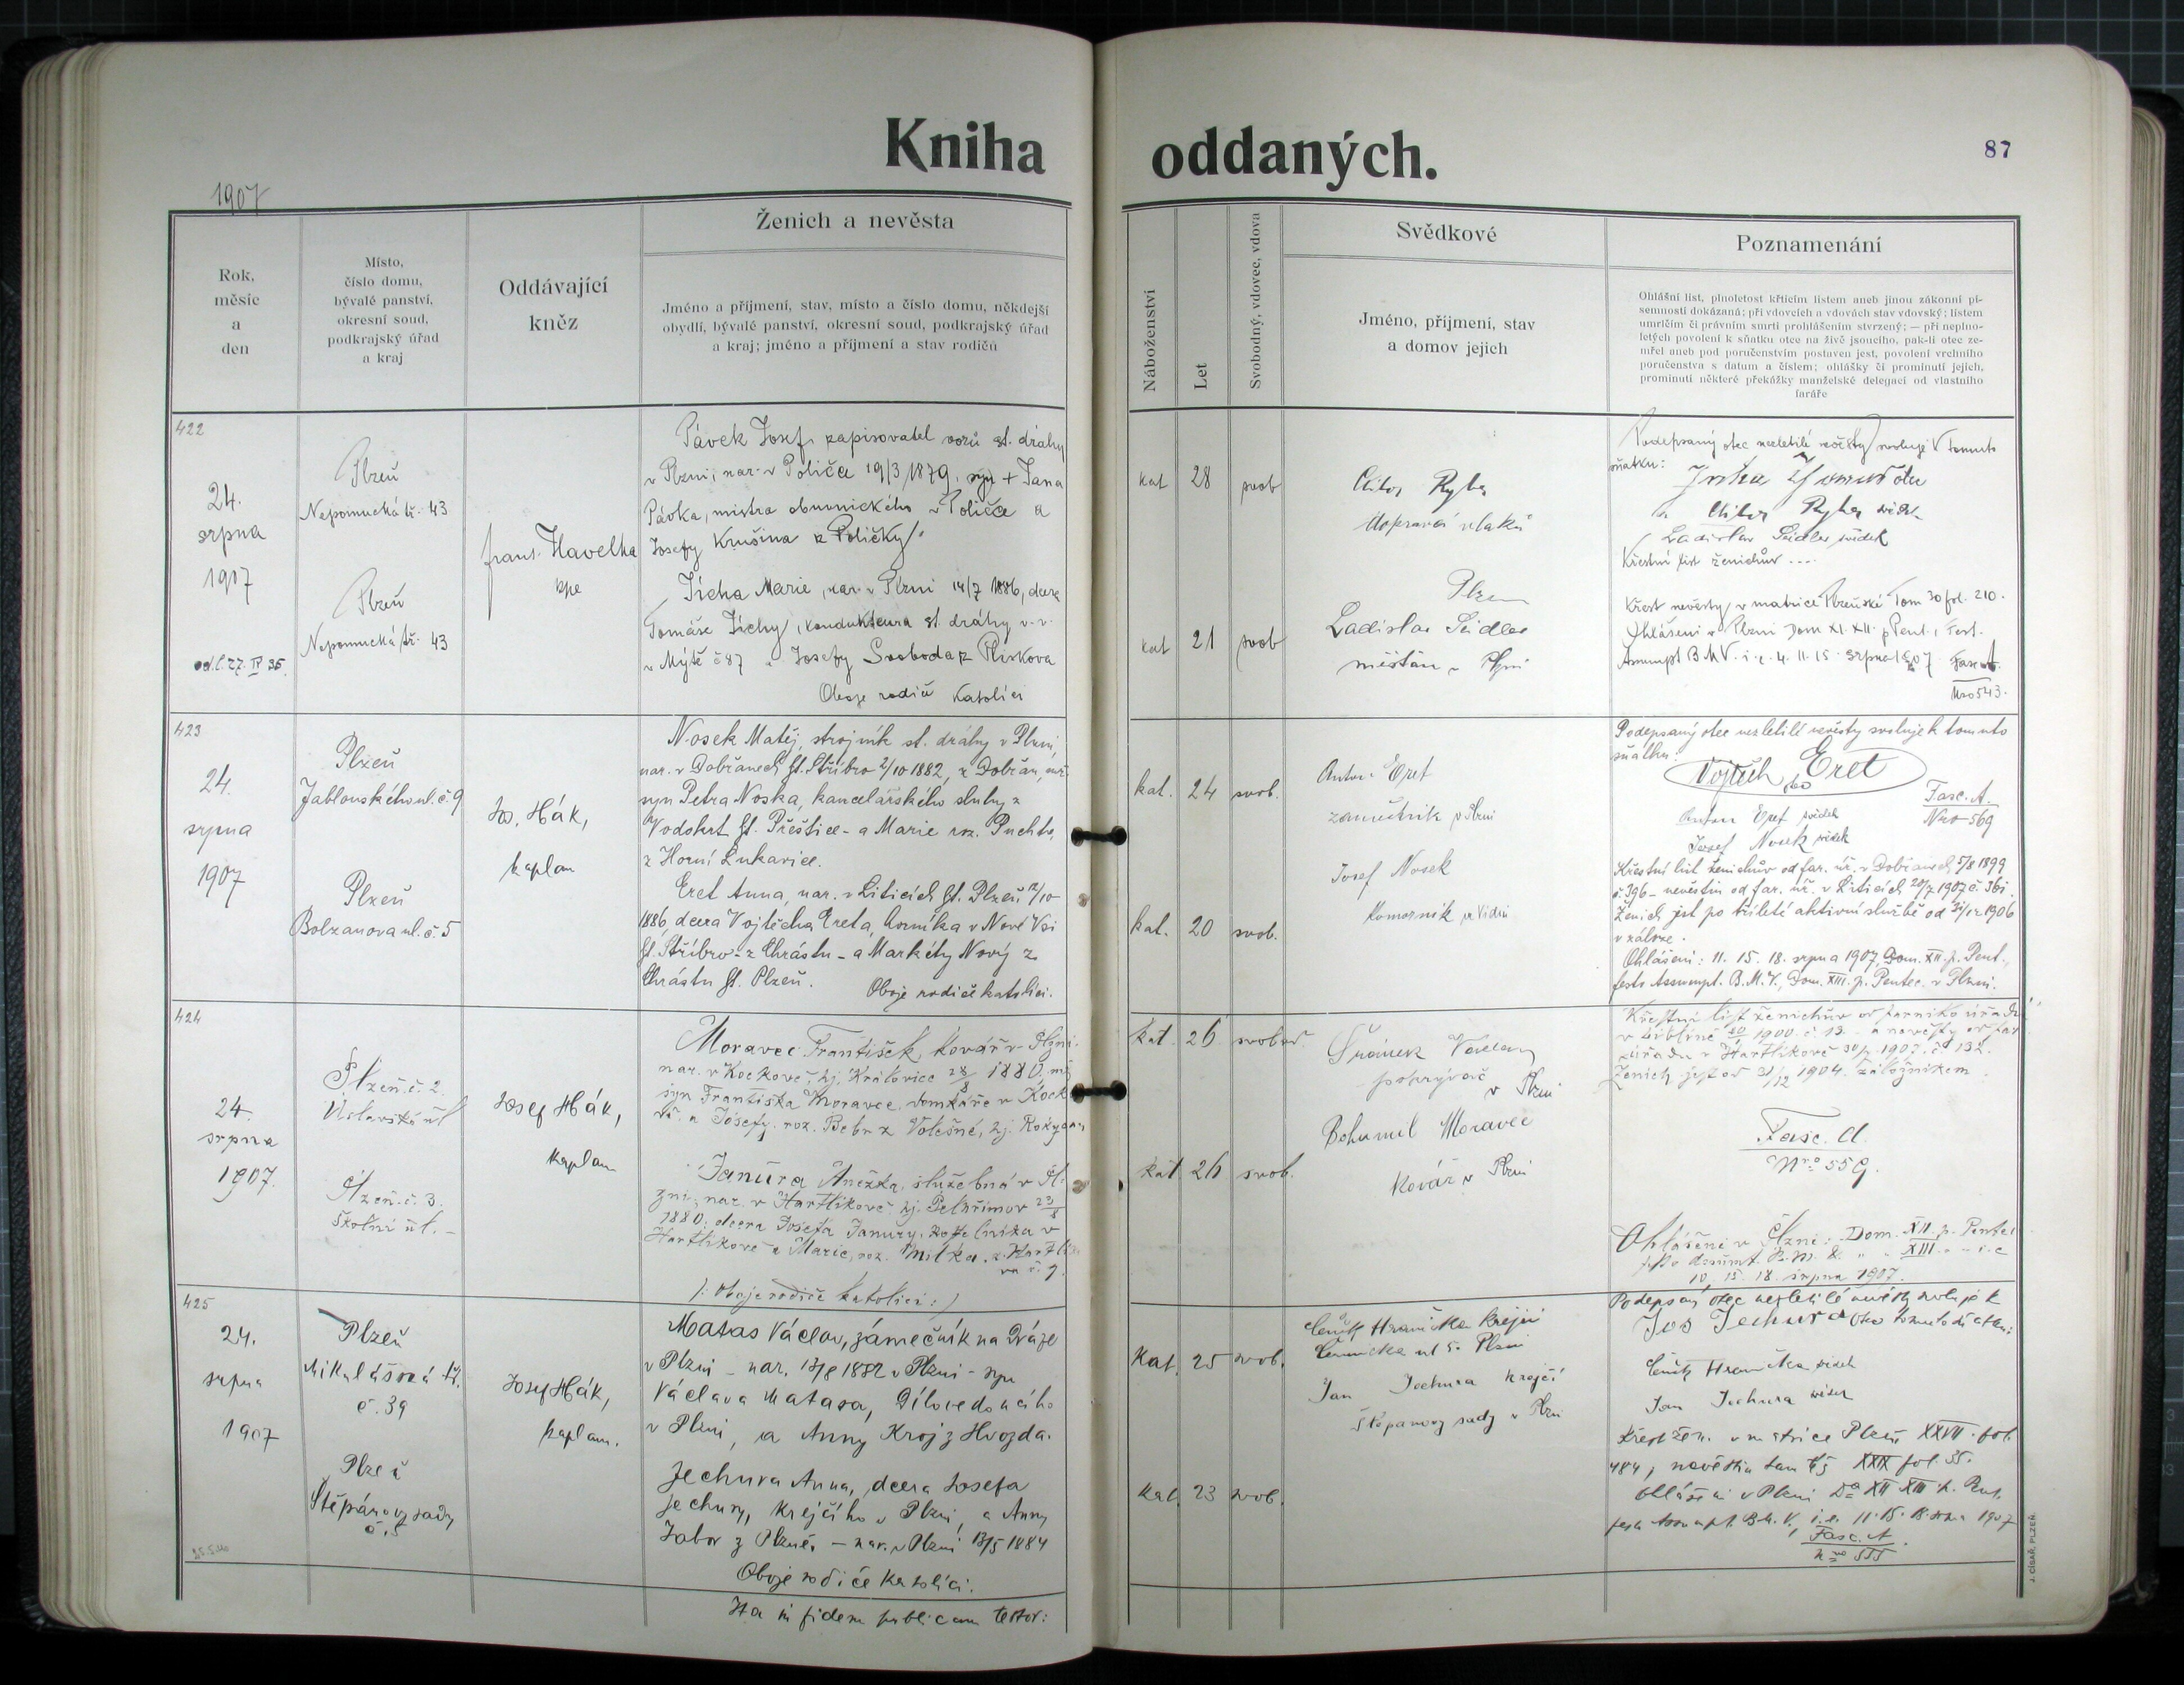 Kniha oddaných.
87
1907
Rok, měsíc a den
Místo, číslo domu, bývalé panství, okresní soud, podkrajský úřad a kraj
Oddávající kněz
Ženich a nevěsta
Jméno a příjmení, stav, místo a číslo domu, někdejší
obydlí, bývalé panství, okresní soud, podkrajský úřad
a kraj; jméno a příjmení a stav rodičů
Náboženství
Let
Svobodný, vdovec, vdova
Svědkové
Jméno, příjmení, stav
a domov jejich
Poznamenání
Ohlášní list, plnoletost křticím listem aneb jinou zákonní pí-
semností dokázaná; při vdovcích a vdovách stav vdovský; listem
umrlčím či právním smrti prohlášením stvrzený; — při neplno-
letých povolení k sňatku otce na živě jsoucího, pak-li otec ze-
mřel aneb pod poručenstvím postaven jest, povolení vrchního
poručenstva s datum a číslem; ohlášky či prominutí jejich,
prominutí některé překážky manželské delegací od vlastního
faráře
422
24.
srpna
1907
Plzeň
Nepomucká tř. 43
Plzeň
Nepomucká tř. 43
Frant. Havelka
Pávek Josef, zapisovatel vozů st. dráhy
v Plzni, nar. v Poličce 19/3 1879, syn + Jana
Pávka, mistra obuvnického v Poličce a
Josefy Krušina z Poličky.
Tichá Marie, nar. v Plzni 14/7 1886, dcera
Tomáše Tichy, kondukteura st. dráhy v. v.
v Mýtě č 87 a Josefy Svoboda z Plískova
Oboje rodiče katolíci
kat 28 svob
kat 21 svob
Ryba
Plzen
Ladislav Seidler
měšťan v Plzni
Podepsaný otec nezletilé nevěsty svoluje k tomuto
sňatku:
Ryba svědek
Ladislav Seidler svědek
Křestní list ženichův
Křest nevěsty v matrice Plzeňské Tom 30 fol. 210.
Ohlášeni v Plzni Dom XI. XII. p Pent., Fest.
Assumpt B M V. i. e. 4. 11. 15. srpna 1907. Fasc A.
Nro 543.
423
24.
srpna
1907
Plzeň
Jablonského ul. č. 9
Plzeň
Bolzanova ul. č. 5
Jos. Hák,
kaplan
Nosek Matěj, strojník st. dráhy v Plzni,
nar. v Dobřanech ht. Stříbro 2/10 1882, z Dobřan,
syn Petra Noska, kancelářského sluhy z
Vodokrt ht. Přeštice - a Marie roz. Puchta,
z Horní Lukavice.
Eret Anna, nar. v Liticích ht. Plzeň 12/10
1886, dcera Vojtěcha Ereta, horníka v Nové Vsi
ht. Stříbro - z Chrástu - a Markéty Nový z
Chrástu ht. Plzeň.
Oboje rodiče katolíci.
kat. 24 svob.
kat. 20 svob.
Anton Eret
zámečník v Plzni
Josef Nosek
Komorník ve Vídni
Podepsaný otec nezletilé nevěsty svoluje k tomuto
sňatku:
Vojtěch Eret
Fasc. A.
Nro 569
Anton Eret svědek
Josef Nosek svědek
Křestní list ženichův od far. úř. v Dobřanech 5/8 1899
č. 396 - nevěstin od far. úř. v Liticích 20/7 1907 č. 361.
Ženich jest po tříleté aktivní službě od 31/12 1906
v záloze.
Ohlášeni: 11. 15. 18. srpna 1907, Dom. XII. p. Pent.,
festo Assumpt. B. M. V., Dom. XIII. p. Pentec. v Plzni.
424
24.
srpna
1907.
Plzeň č. 2
Plzeň č. 3.
Školní ul. -
Josef Hák,
kaplan
Moravec František, kovář v Plzni.
nar. v Kockově, hj. Kralovice 28/8 1880.
syn Františka Moravce, domkáře v Kock
a Josefy, roz. Bebr z Volešné, hj. Rokycany
Janura Anežka, služebná v Pl-
zni, nar. v Hartlíkově hj. Pelhřimov 23/8
1880, dcera Josefa Janury, v
Hartlíkově a Marie, roz. Milka, z Hartlíko
va č. 9.
/: Oboje rodiče katolíci :/
kat. 26 svobod.
kat 26 svob.
Václav
pokrývač
v Plzni
Bohumil Moravec
Kovář v Plzni
Křestní list ženichův od farního úřadu
1900. č. 13. - a nevěsty od far
úřadu v Hartlíkově 30/7. 1907. č. 132.
Ženich jest od 31/12 1904. záložníkem
Fasc. A.
Nro 559.
Ohlášeni v Plzni: Dom. XII p. Pentec
10, 15. 18. srpna 1907.
425
24.
srpna
1907
Plzeň
Mikulášská tř.
č. 39
Plzeň
Štěpánovy sady
č. 5
Josef Hák,
kaplan.
Matas Václav, zámečník na Dráze
v Plzni - nar. 13/8 1882 v Plzni - syn
Václava Matasa, Dílovedoucího
v Plzni, a Anny Kroj z Hvozda.
Jechura Anna, dcera Josefa
Jechury, krejčího v Plzni, a Anny
Tabor z Plzně, - nar. v Plzni 13/5 1884
Oboje rodiče katolíci.
Ita in fidem publicam testor:
Kat. 25 svob.
Kat. 23 svob.
Čeněk Hranička krejčí
Plzni
Jan Jechura krejčí
Štěpánovy sady v Plzni
Podepsaný otec nezletilé nevěsty svoluje k
Jos Jechura otec tomuto sňatku:
Čeněk Hranička svědek
Jan Jechura svědek
Křest žen. v matrice Plzeň XXVII. fol.
484, nevěstin tam též XXIX fol. 35.
Ohlášeni v Plzni Dca XII XIII p. Pent.
festo Assumpt. B. M. V., i. e. 11. 15. 18. srpna 1907
Fasc. A.
Nro 555
J. CÍSAŘ, PLZEŇ.